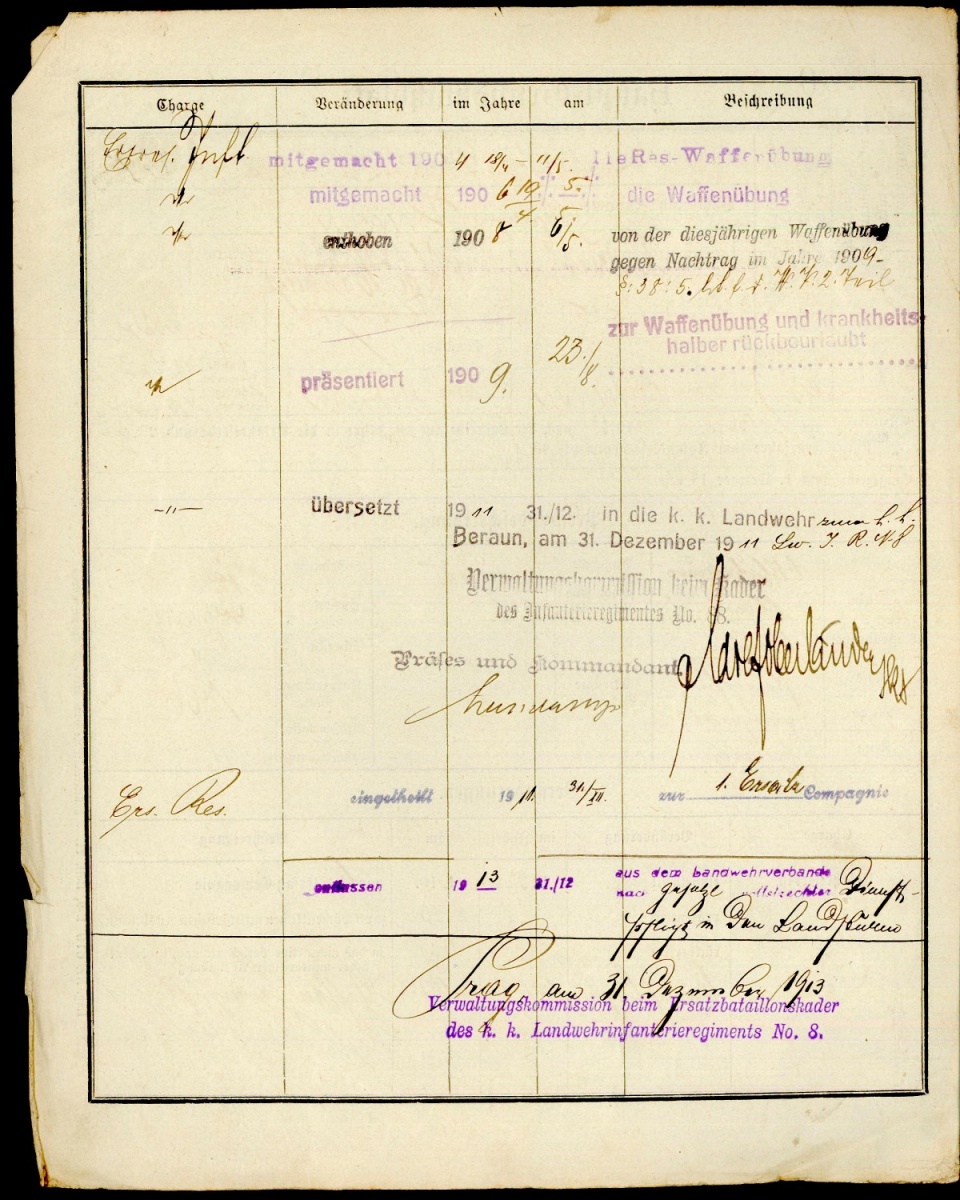 Charge Veränderung im Jahre am Beschreibung
Ersres. Inft. mitgemacht 190 4 18/4 – 11/5. die Res-Waffenübung
mitgemacht 190 6 19/4 ./. 5. ./. die Waffenübung
enthoben 190 8 6/5. von der diesjährigen Waffenübung
gegen Nachtrag im Jahre 1909-
§: 38: 5. W. V. 2. Teil
zur Waffenübung und krankheits-
halber rückbeurlaubt
präsentiert 190 9. 23./8.
-„- übersetzt 19 11 31./12. in die k. k. Landwehr zum k. k.
Beraun, am 31. Dezember 19 11 Lw. I. R. N 8
Verwaltungskommission beim Kader
des Infanterieregimentes No. 88.
Präses und Kommandant.
Ers. Res. eingetheilt 19 11. 31/XII. zur 1. Ersatz Compagnie
entlassen 19 13 31./12 aus dem Landwehrverbande
nach Gesetze vollstreckter Dienst-
pfligt in den Landsturm
Prag, am 31 Dezember 1913
Verwaltungskommission beim Ersatzbataillonskader
des k. k. Landwehrinfanterieregiments No. 8.